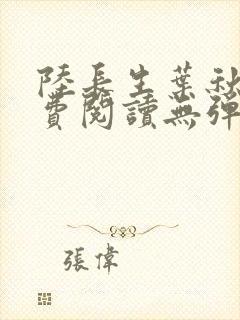 陸長生葉秋
費閱讀無彈
張偉